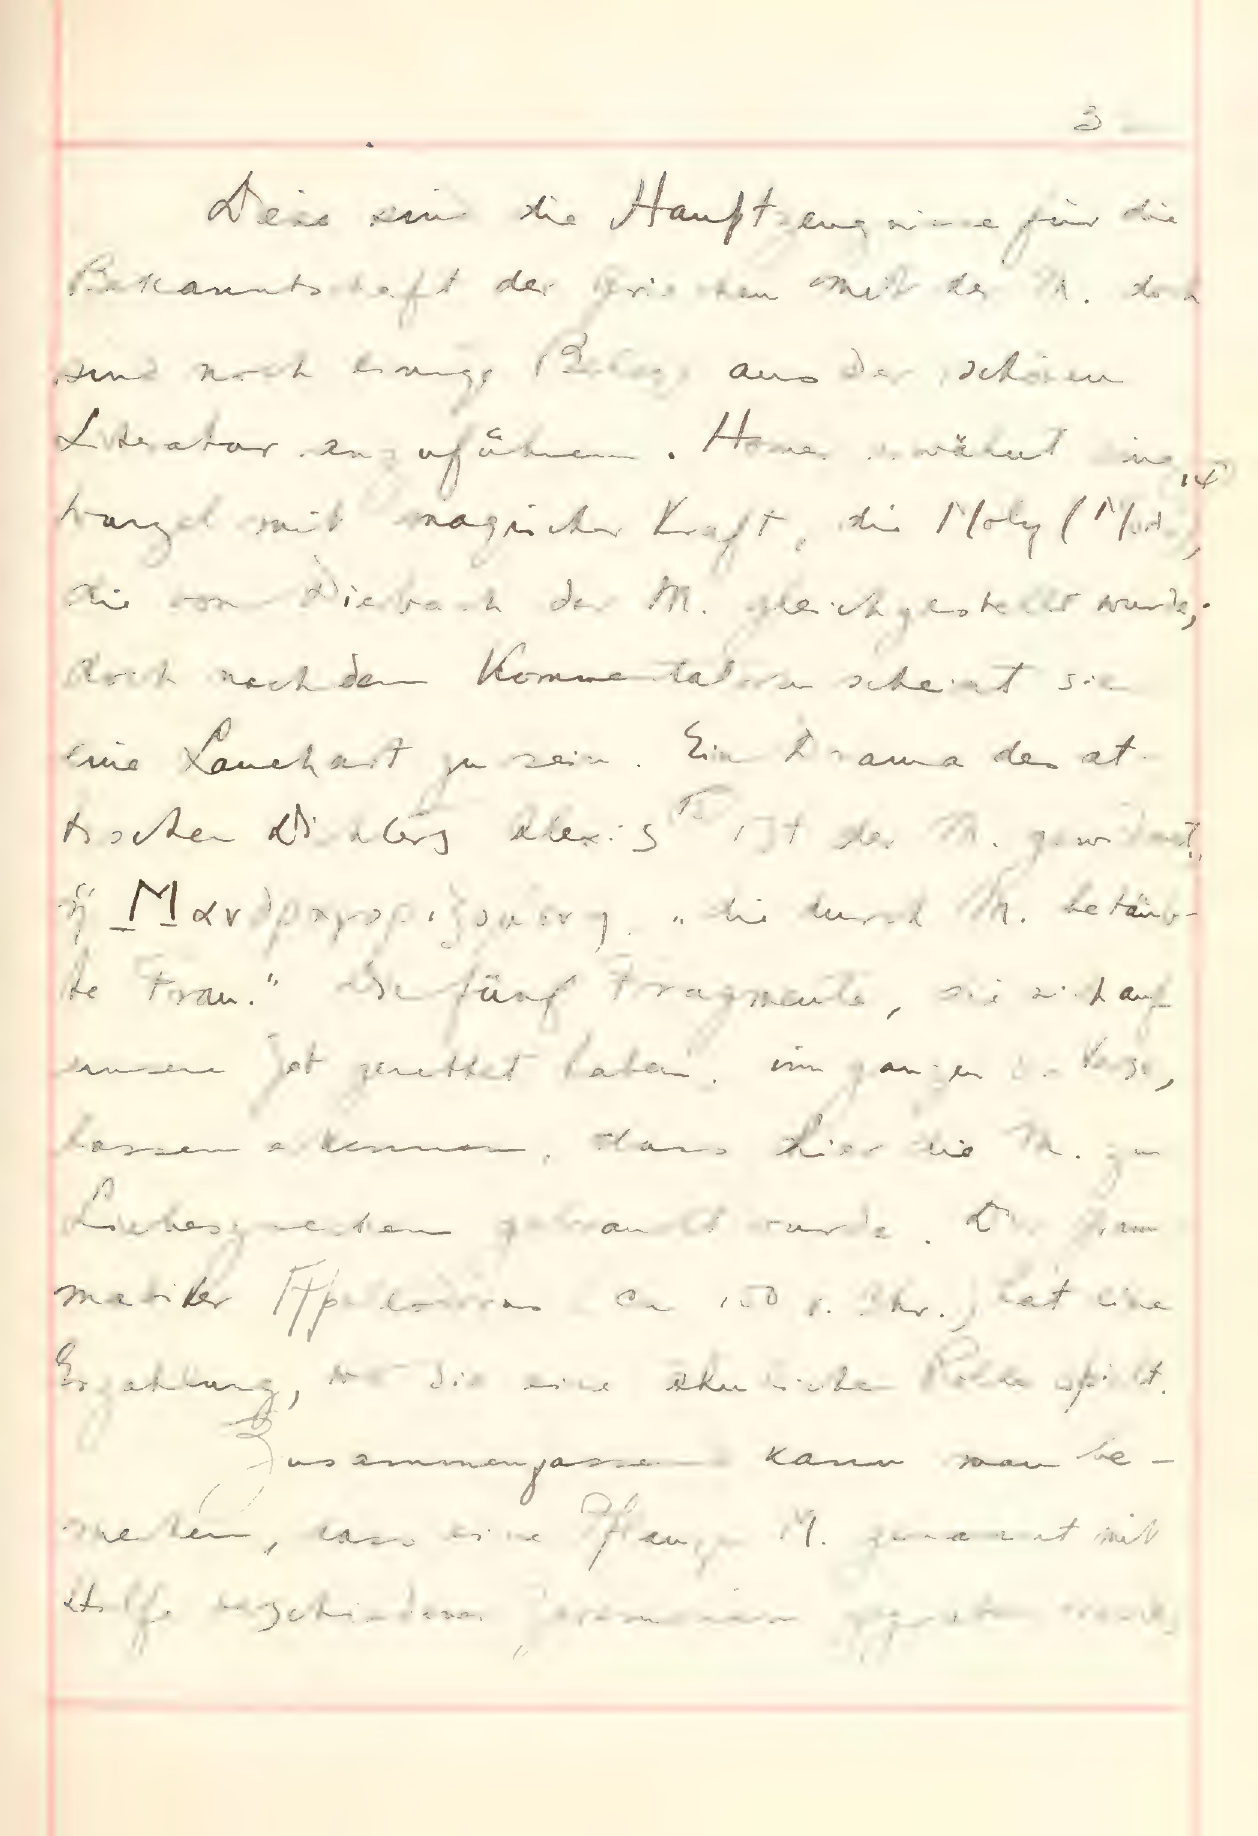 3
Dies sind die Hauptzeugnisse für die
Bekanntschaft der Griechen mit der M. doch
sind noch einige Belege aus der schönen
Literatur anzuführen. Homer erwähnt eine
Wurzel mit magischer Kraft, die Moly (
14
die von Dierbach der M. gleichgestellt wurde;
doch nach den Kommentatoren scheint sie
eine Lauchart zu sein. Ein Drama des at-
tischen Dichters Alexis 15 ist der M. gewidmet.
ἡ Μανδραγοριζομένη „die durch M. betäub-
te Frau." Die fünf Fragmente, die sich auf
unsere Zeit gerettet haben, im ganzen Verse,
lassen erkennen, dass hier die M. zu
Liebeszwecken gebraucht wurde. Der Gram
matiker ca 150 v. Chr.) hat eine
Erzahlung, wo die eine ähnliche Rolle spielt.
Zusammenfassend kann man be-
merken, dass eine Pflanze M. genannt mit
Hilfe verschiedener Zeremonien gegraben wurde,